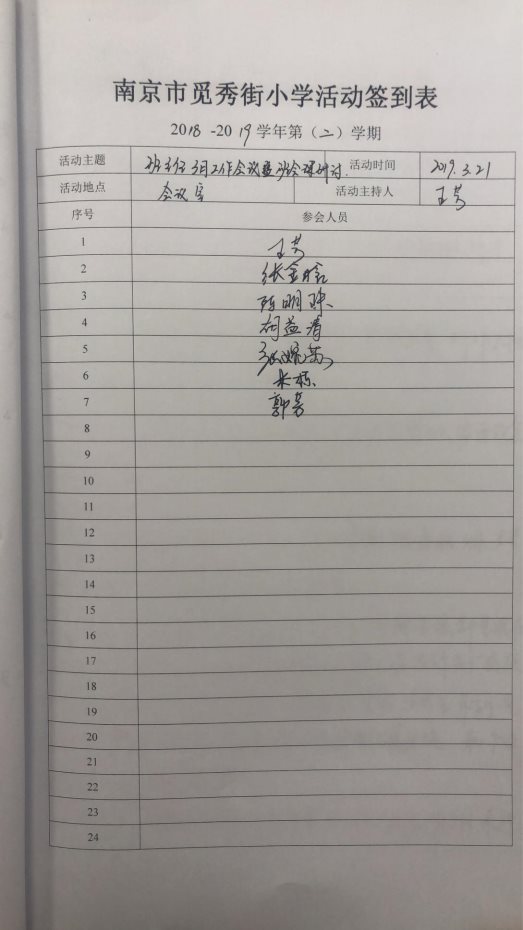 南京市觅秀街小学活动签到表
2018-2019学年第（二）学期
活动主题 班主任3月工作会议暨班会课研讨. 活动时间 2019.3.21
活动地点 会议室 活动主持人 王芳
序号 参会人员
1 王芳
2 张金
3 陈明珠
4 何益清
5
6 朱栋
7 郭芳
8
9
10
11
12
13
14
15
16
17
18
19
20
21
22
23
24